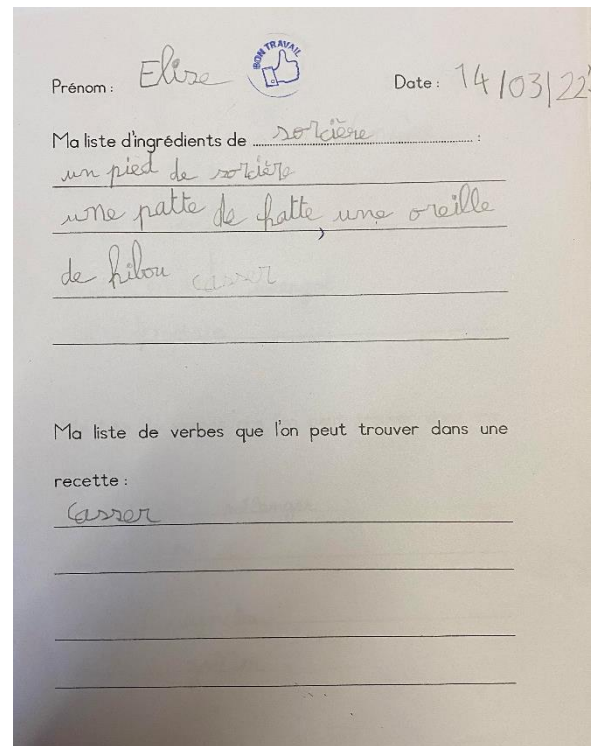 BON TRAVAIL
Prénom : Elise Date : 14/03/22
Ma liste d'ingrédients de sorcière :
un pied de sorcière
une patte de fatte, une oreille
de hibou casser
Ma liste de verbes que l'on peut trouver dans une
recette :
Casser